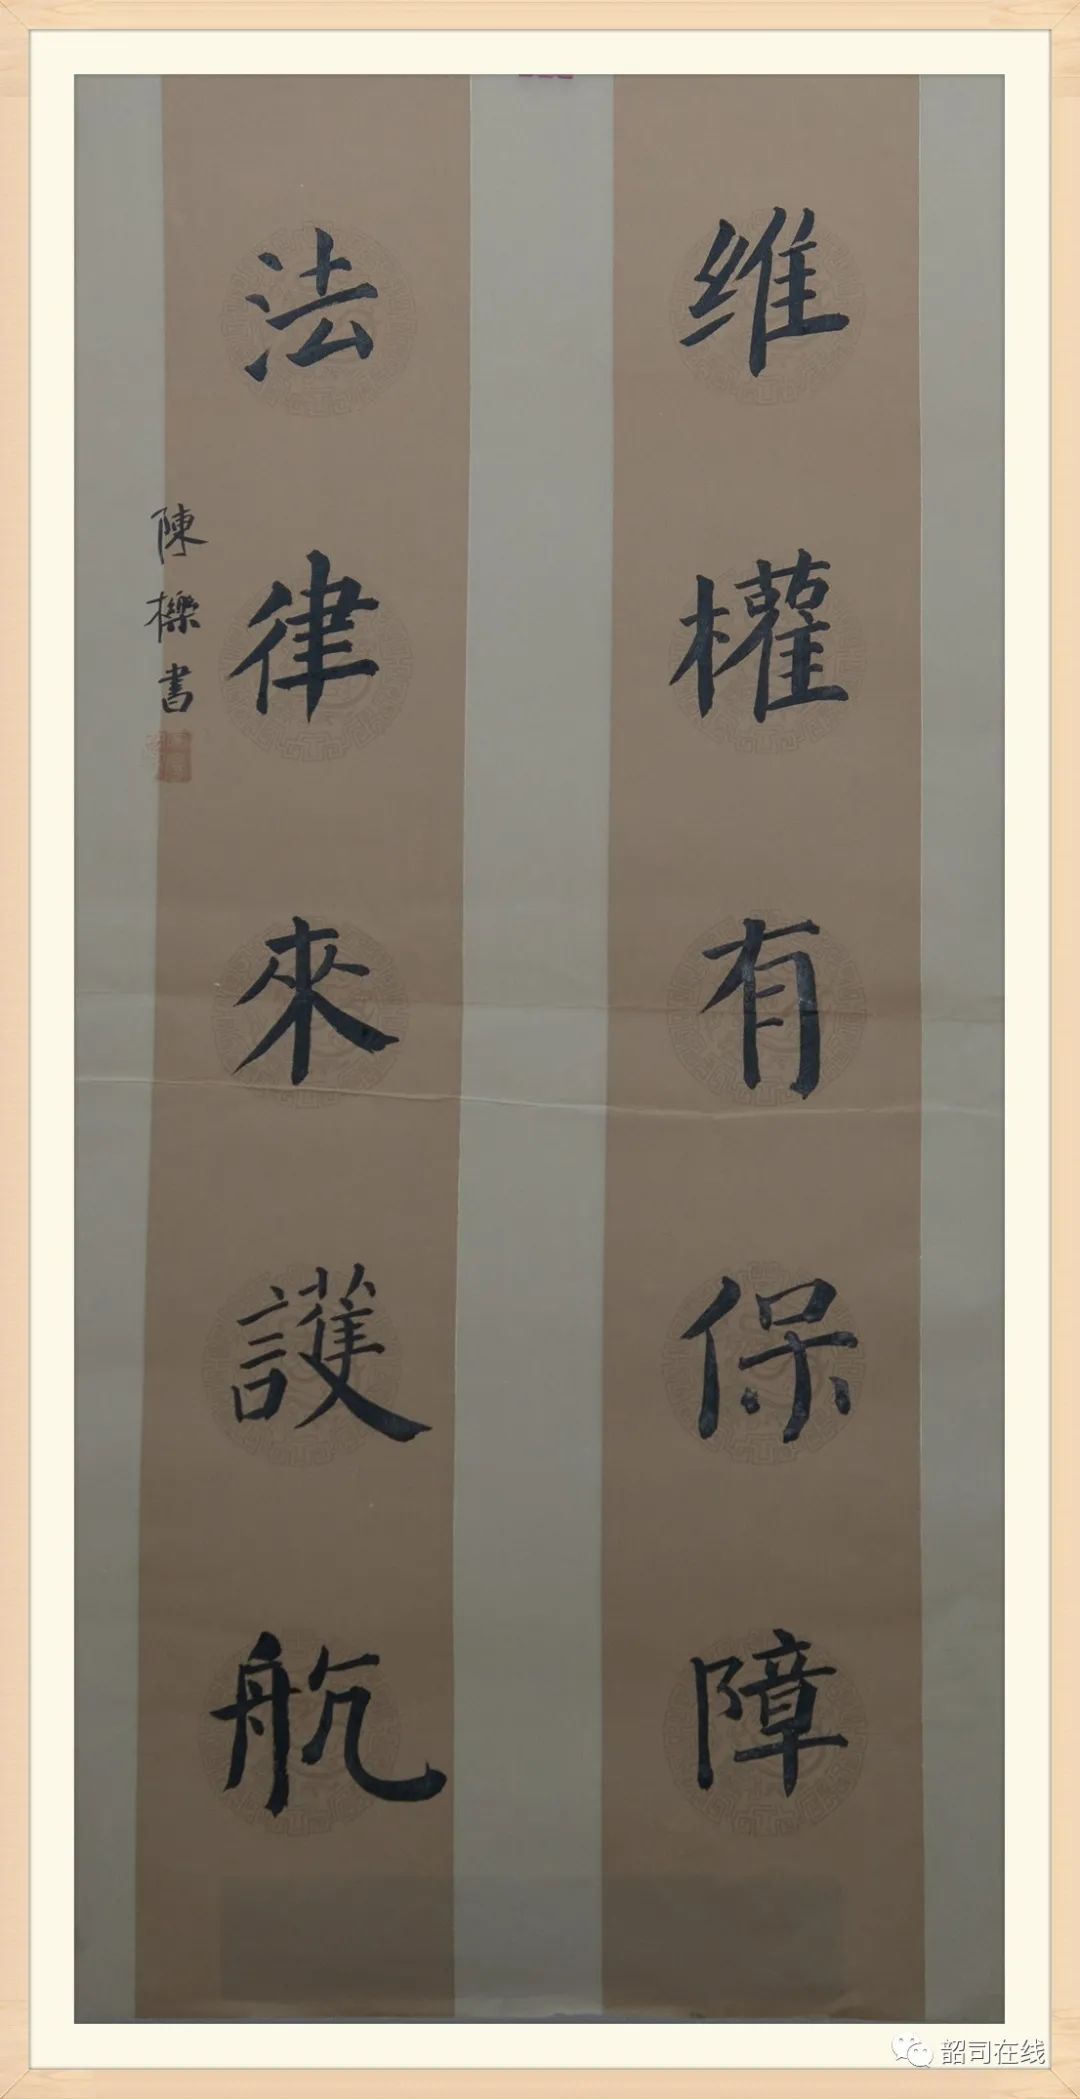 维權有保障
法律來護航
陳櫟書
韶司在线